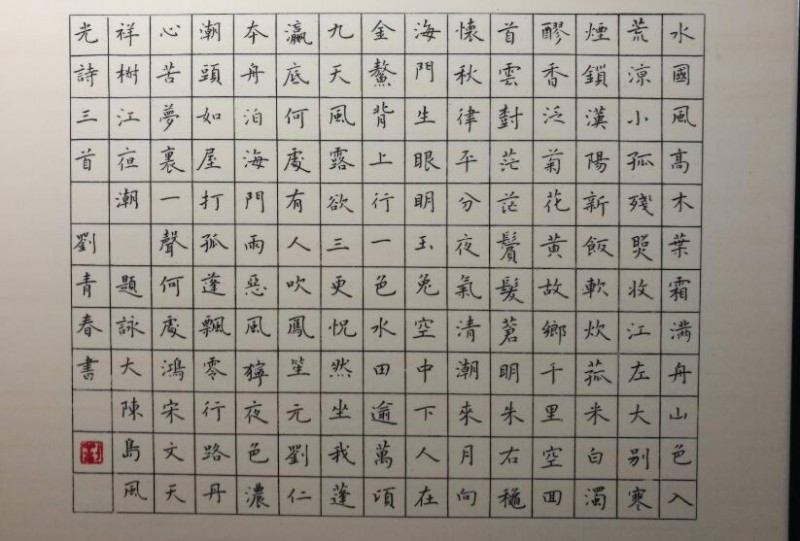 水國風高木葉霜滿舟山色入
荒涼小孤殘照收江左大別寒
煙鎖漢陽新飯軟炊菰米白濁
醪香泛菊花黃故鄉千里空回
首雲對茫茫鬢髮蒼明朱右穐
懷秋律平分夜氣清潮來月向
海門生眼明玉兔空中下人在
金鰲背上行一色水田逾萬頃
九天風露欲三更怳然坐我蓬
瀛底何處有人吹鳳笙元劉仁
本舟泊海門雨惡風獰夜色濃
潮頭如屋打孤蓬飄零行路丹
心苦夢裏一聲何處鴻宋文天
祥樹江夜潮 題詠大陳島風
光詩三首 劉青春書